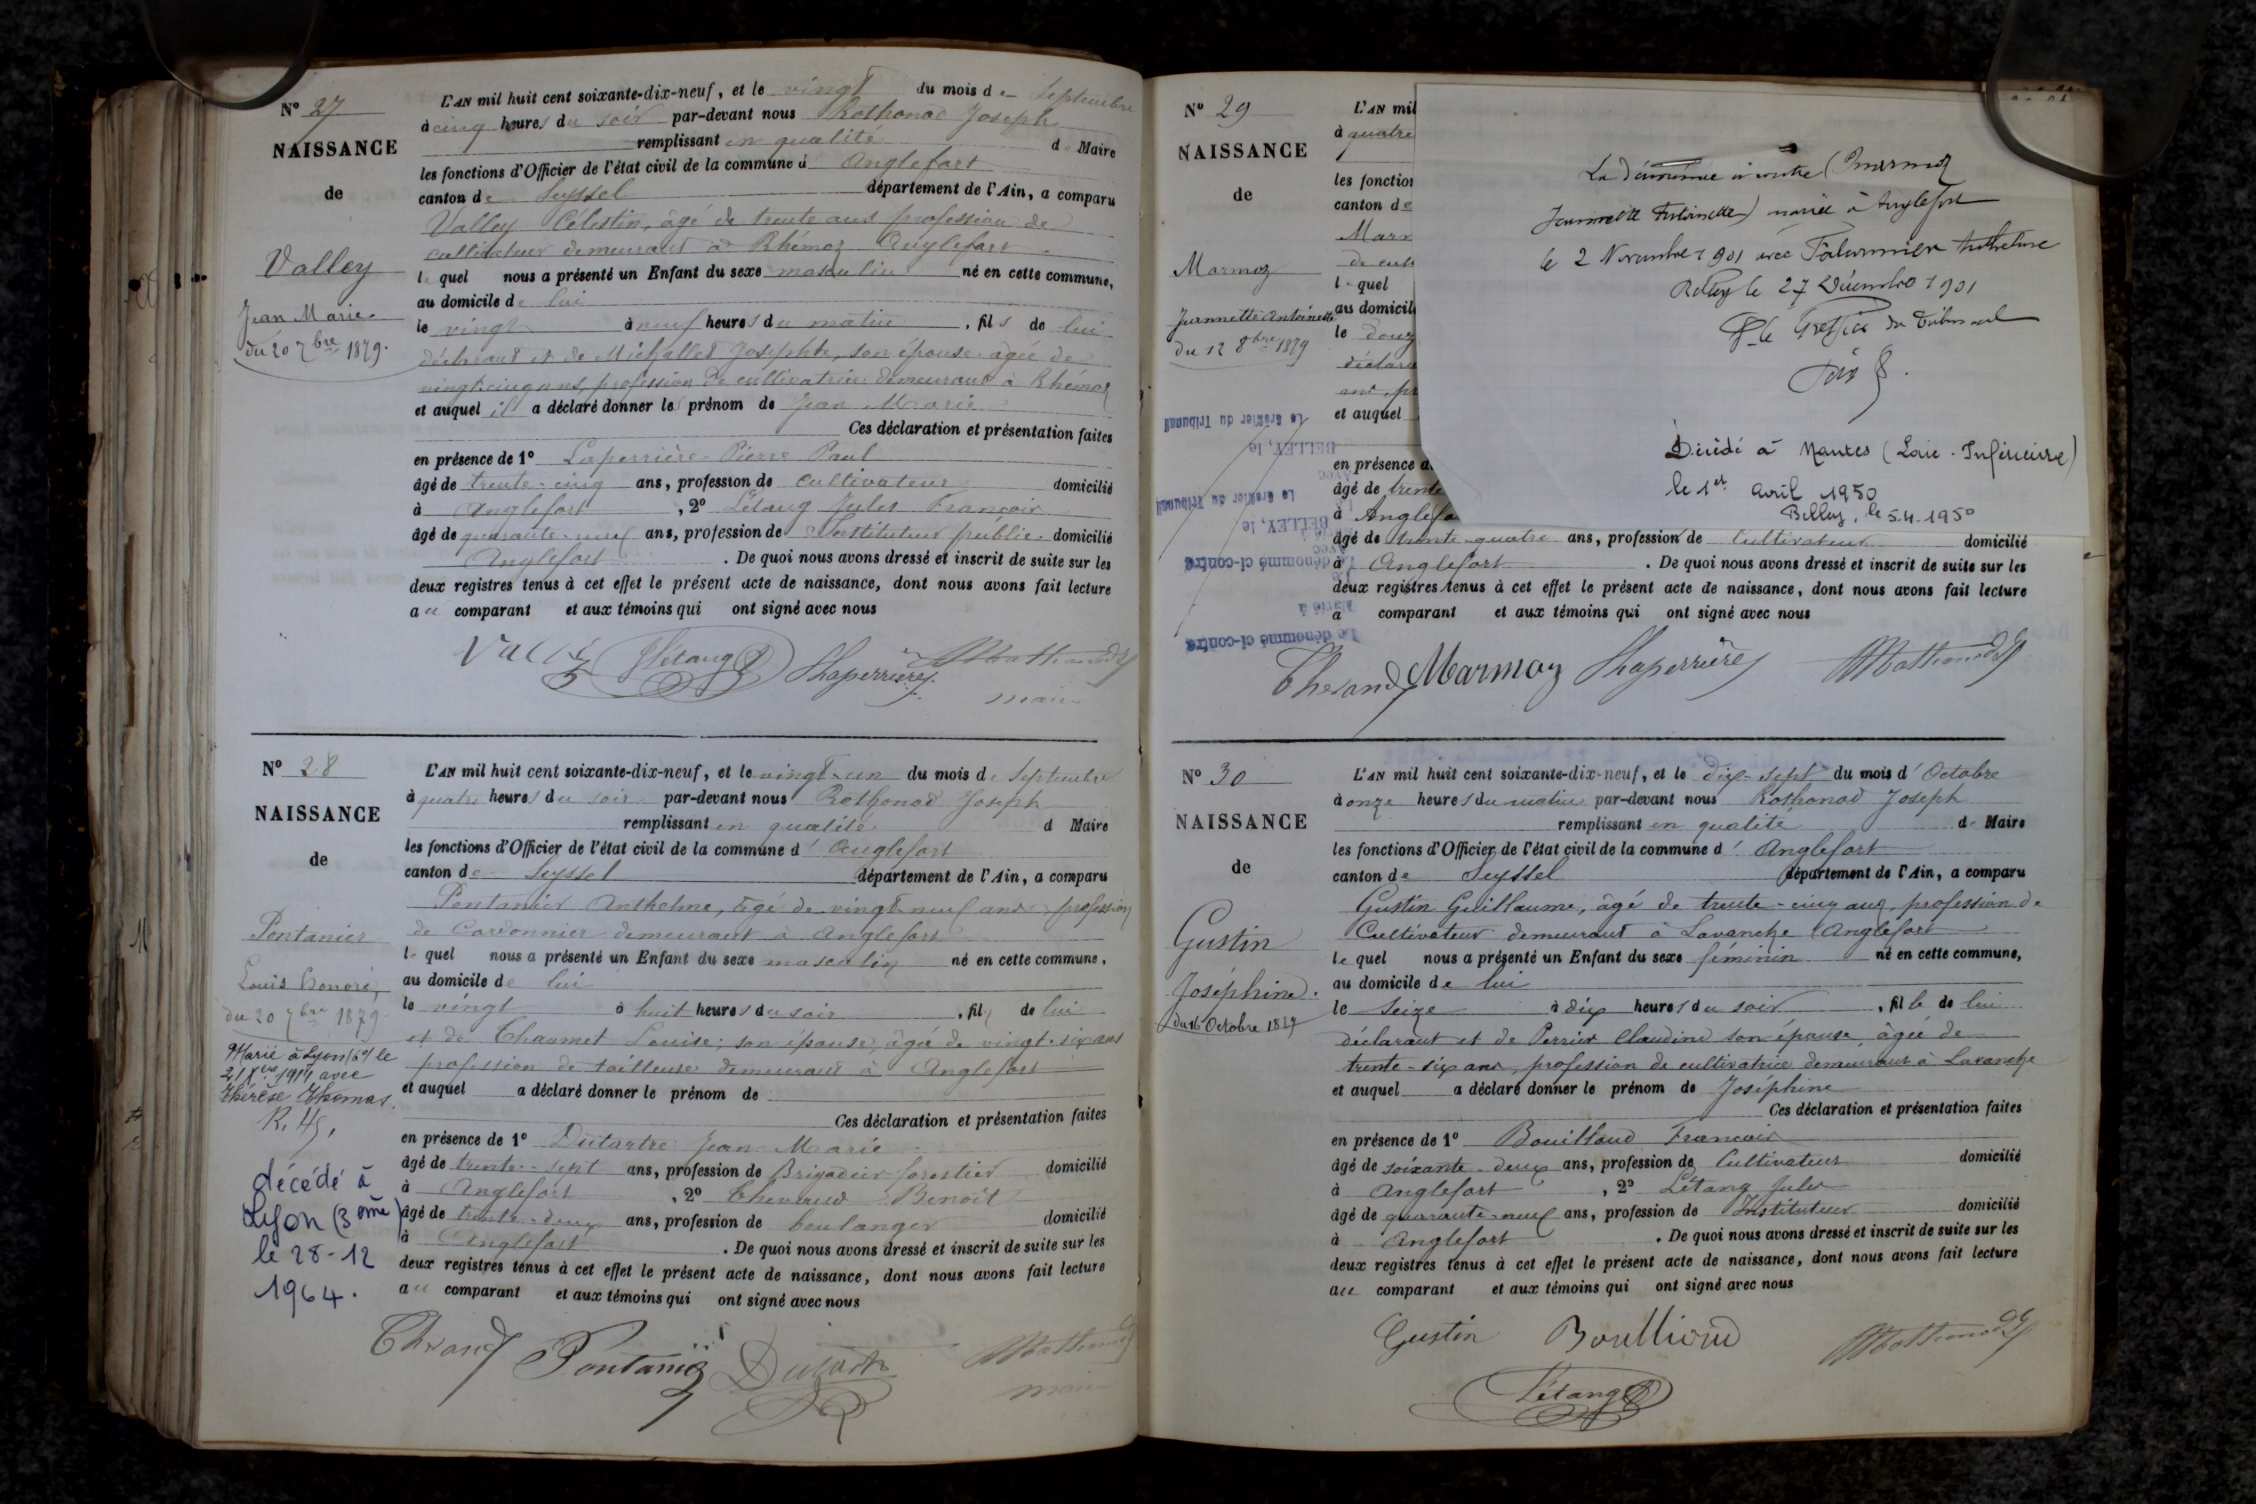 N° 27
NAISSANCE
de
Valley
Jean Marie
du 20 7bre 1879.
L'AN mil huit cent soixante-dix-neuf, et le vingt du mois de Septembre
à cinq heures du soir par-devant nous Rothonod Joseph
remplissant en qualité de Maire
les fonctions d'Officier de l'état civil de la commune d' Anglefort
canton de Seyssel département de l'Ain, a comparu
Valley Célestin, âgé de trente ans profession de
cultivateur demeurant à Rhémoz Anglefort
le quel nous a présenté un Enfant du sexe masculin né en cette commune,
au domicile de lui
le vingt à neuf heures du matin, fils de lui
déclarant et de Michallet Josephte, son épouse âgée de
vingt-cinq ans, profession de cultivatrice demeurant à Rhémoz
et auquel il a déclaré donner le prénom de Jean Marie
Ces déclaration et présentation faites
en présence de 1° Laperrière Pierre Paul
âgé de trente-cinq ans, profession de cultivateur domicilié
à Anglefort, 2° Létang Jules François
âgé de quarante-neuf ans, profession de Instituteur public domicilié
Anglefort. De quoi nous avons dressé et inscrit de suite sur les
deux registres tenus à cet effet le présent acte de naissance, dont nous avons fait lecture
au comparant et aux témoins qui ont signé avec nous
Létang Laperrière Rothonod
maire
N° 28
NAISSANCE
de
Pontanier
Louis honoré,
du 20 7bre 1879
Marié à Lyon (6e) le
avec
Thérèse Thomas.
décédé à
Lyon (3ème)
le 28-12
1964.
L'AN mil huit cent soixante-dix-neuf, et le vingt-un du mois de Septembre
à quatre heures du soir par-devant nous Rothonod Joseph
remplissant en qualité d Maire
les fonctions d'Officier de l'état civil de la commune d' Anglefort
canton de Seyssel département de l'Ain, a comparu
Pontanier Anthelme, âgé de vingt-neuf ans profession
de Cordonnier demeurant à Anglefort
le quel nous a présenté un Enfant du sexe masculin né en cette commune,
au domicile de lui
le vingt à huit heures du soir, fils de lui
et de Chaumet Louise, son épouse, âgée de vingt-six ans
profession de tailleuse demeurant à Anglefort
et auquel a déclaré donner le prénom de
Ces déclaration et présentation faites
en présence de 1° Dutartre Jean Marie
âgé de trente-sept ans, profession de Brigadier forestier domicilié
à Anglefort, 2° Benoit
âgé de trente-deux ans, profession de boulanger domicilié
à Anglefort. De quoi nous avons dressé et inscrit de suite sur les
deux registres tenus à cet effet le présent acte de naissance, dont nous avons fait lecture
au comparant et aux témoins qui ont signé avec nous
Pontanier Rothonod
maire
N° 29
NAISSANCE
de
Marmoz
Jeannette Antoinette
du 12 8bre 1879
L'AN mil
à quatre
les fonction
canton de
Marm
de cult
le quel
au domicile
le douze
déclara
ans, pr
et auquel
en présence d
âgé de trente
à Anglefo
La dénommée ci-contre (Marmoz
Jeannette Antoinette) mariée à Anglefort
le 2 Novembre 1901 avec Anthelme
Belley le 27 Décembre 1901
P. le Greffier du Tribunal
Décédé à Nantes (Loire-Inférieure)
le 1er avril 1950
Belley, le 5.4.1950
Le Greffier du Tribunal
BELLEY, le
Avec
Le Greffier du Tribunal
BELLEY, le
Avec
Le dénommé ci-contre
Marié à
Le dénommé ci-contre
âgé de trente-quatre ans, profession de Cultivateur domicilié
à Anglefort. De quoi nous avons dressé et inscrit de suite sur les
deux registres tenus à cet effet le présent acte de naissance, dont nous avons fait lecture
a comparant et aux témoins qui ont signé avec nous
Marmoz Laperrière Rothonod
N° 30
NAISSANCE
de
Gustin
Joséphine.
du 16 Octobre 1879
L'AN mil huit cent soixante-dix-neuf, et le dix-sept du mois d'Octobre
à onze heures du matin par-devant nous Rothonod Joseph
remplissant en qualité de Maire
les fonctions d'Officier de l'état civil de la commune d' Anglefort
canton de Seyssel département de l'Ain, a comparu
Gustin Guillaume, âgé de trente-cinq ans, profession de
Cultivateur demeurant à Lavanche Anglefort
le quel nous a présenté un Enfant du sexe féminin né en cette commune,
au domicile de lui
le Seize à dix heures du soir, fille de lui
déclarant et de Perrier Claudine son épouse, âgée de
trente-six ans, profession de cultivatrice demeurant à Lavanche
et auquel a déclaré donner le prénom de Joséphine
Ces déclaration et présentation faites
en présence de 1° Bouilloud François
âgé de soixante-deux ans, profession de Cultivateur domicilié
à Anglefort, 2° Létang Jules
âgé de quarante-neuf ans, profession de Instituteur domicilié
à Anglefort. De quoi nous avons dressé et inscrit de suite sur les
deux registres tenus à cet effet le présent acte de naissance, dont nous avons fait lecture
au comparant et aux témoins qui ont signé avec nous
Gustin Boullioud Rothonod
Létang